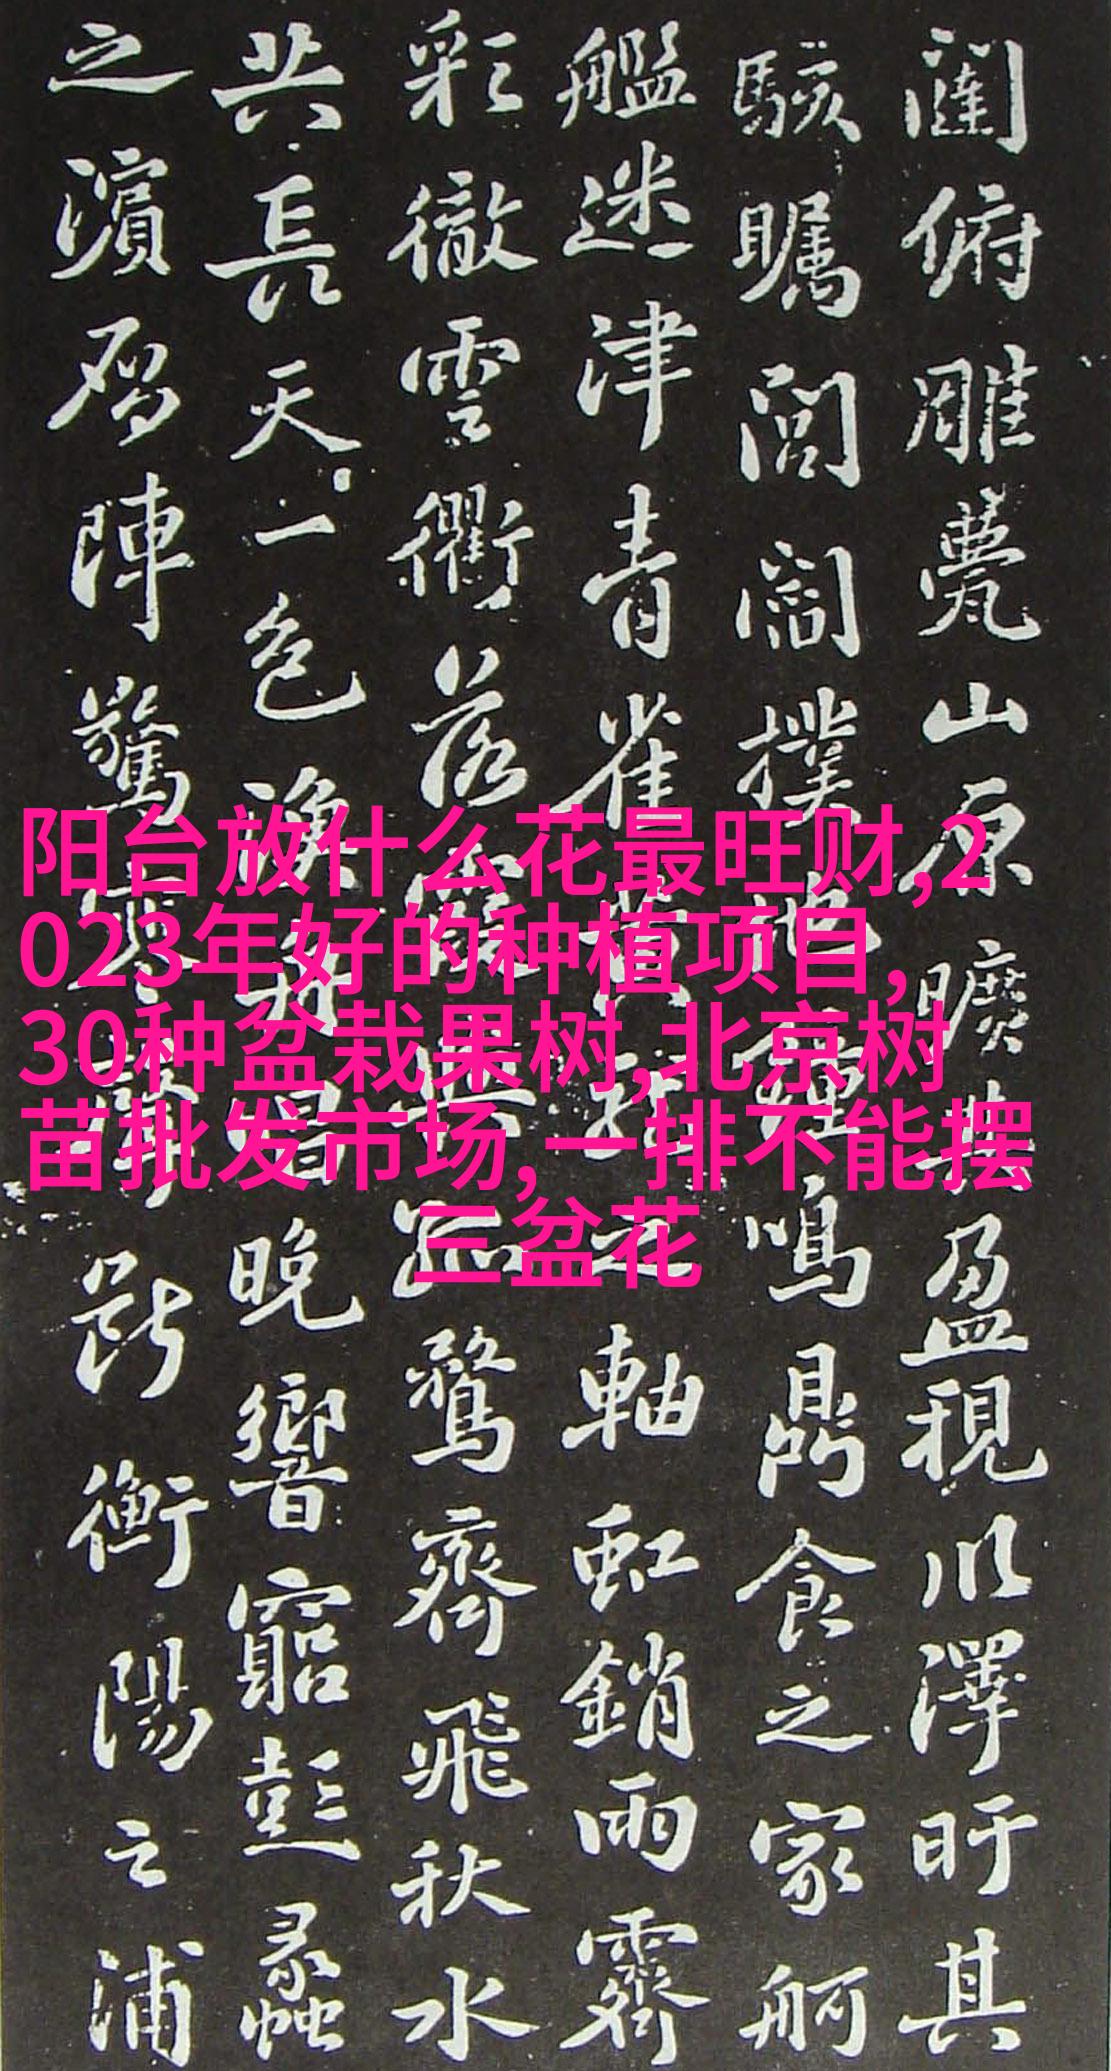 闥俯雕甍山原曠其盈視川澤盱其
駭矚閭閻撲地鍾鳴鼎食之家舸
艦迷津青雀黃龍之軸虹銷雨霽
彩徹雲衢落霞與孤鶩齊飛秋水
共長天一色漁舟唱晚響窮彭蠡
之濱雁陣驚寒聲斷衡陽之浦
阳台放什么花最旺财,2
023年好的种植项目,
30种盆栽果树,北京树
苗批发市场,一排不能摆
三盆花